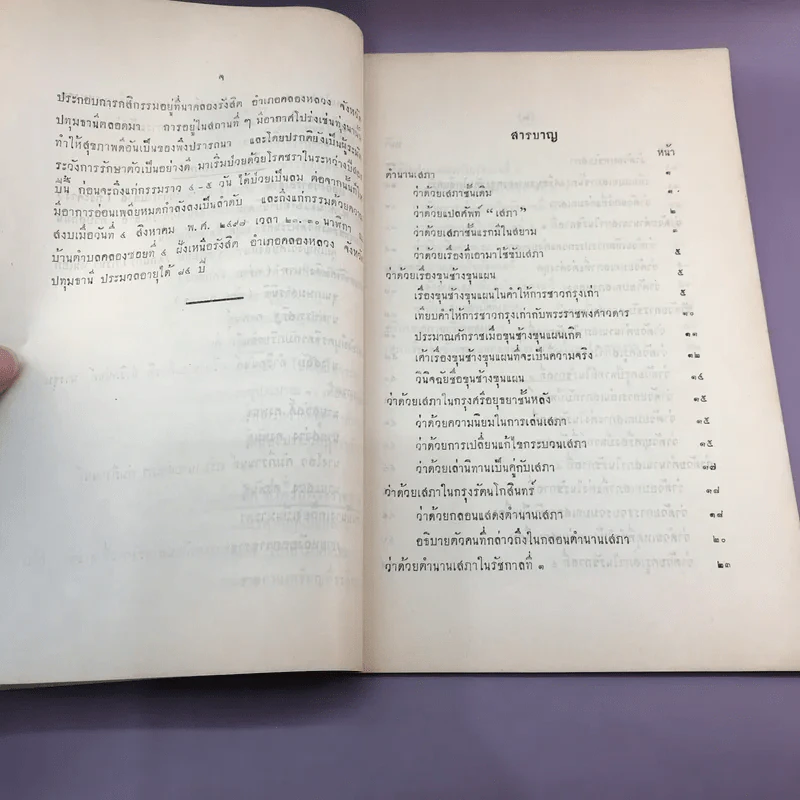 ๆ
ประกอบการกสิกรรมอยู่ที่นาคลองรังสิต อำเภอคลองหลวง จังหวัด
ปทุมธานีตลอดมา การอยู่ในสถานที่ ๆ มีอากาศโปร่งเช่นทุ่งนา
ทำให้สุขภาพดีอันเป็นของพึงปรารถนา และโดยปรกติยังเป็นผู้ระมัด
ระวังการรักษาตัวเป็นอย่างดี มาเริ่มป่วยด้วยโรคชราในระหว่างปีสอง
ปีนี้ ก่อนจะถึงแก่กรรมราว ๔-๕ วัน ได้ป่วยเป็นลม ต่อจากนั้นก็
มีอาการอ่อนเพลียหมดกำลังลงเป็นลำดับ และถึงแก่กรรมด้วยความ
สงบเมื่อวันที่ ๔ สิงหาคม พ.ศ. ๒๔๙๘ เวลา ๒๑.๑๐ นาฬิกา
บ้านตำบลคลองซอยที่ ๕ ฝั่งเหนือรังสิต อำเภอคลองหลวง จังหวัด
ปทุมธานี ประมวลอายุได้ ๘๕ ปี
สารบาญ
หน้า
ตำนานเสภา ๑
ว่าด้วยเสภาชั้นเดิม ๑
ว่าด้วยแปลศัพท์ “เสภา” ๒
ว่าด้วยเสภาชั้นแรกมีในสยาม
ว่าด้วยเรื่องที่เอามาใช้ขับเสภา ๕
ว่าด้วยเรื่องขุนช้างขุนแผน ๕
เรื่องขุนช้างขุนแผนในคำให้การชาวกรุงเก่า ๕
เทียบคำให้การชาวกรุงเก่ากับพระราชพงศาวดาร ๑๐
ประมาณศักราชเมื่อขุนช้างขุนแผนเกิด ๑๑
เค้าเรื่องขุนช้างขุนแผนที่จะเป็นความจริง ๑๒
วินิจฉัยชื่อขุนช้างขุนแผน ๑๔
ว่าด้วยเสภาในกรุงศรีอยุธยาชั้นหลัง ๑๕
ว่าด้วยความนิยมในการเล่นเสภา ๑๕
ว่าด้วยการเปลี่ยนแก้ไขกระบวนเสภา ๑๕
ว่าด้วยเล่านิทานเป็นคู่กับเสภา ๑๗
ว่าด้วยเสภาในกรุงรัตนโกสินทร์ ๑๗
ว่าด้วยกลอนแสดงตำนานเสภา ๑๘
อธิบายตัวคนที่กล่าวถึงในกลอนตำนานเสภา ๒๐
ว่าด้วยตำนานเสภาในรัชกาลที่ ๑ ๒๓